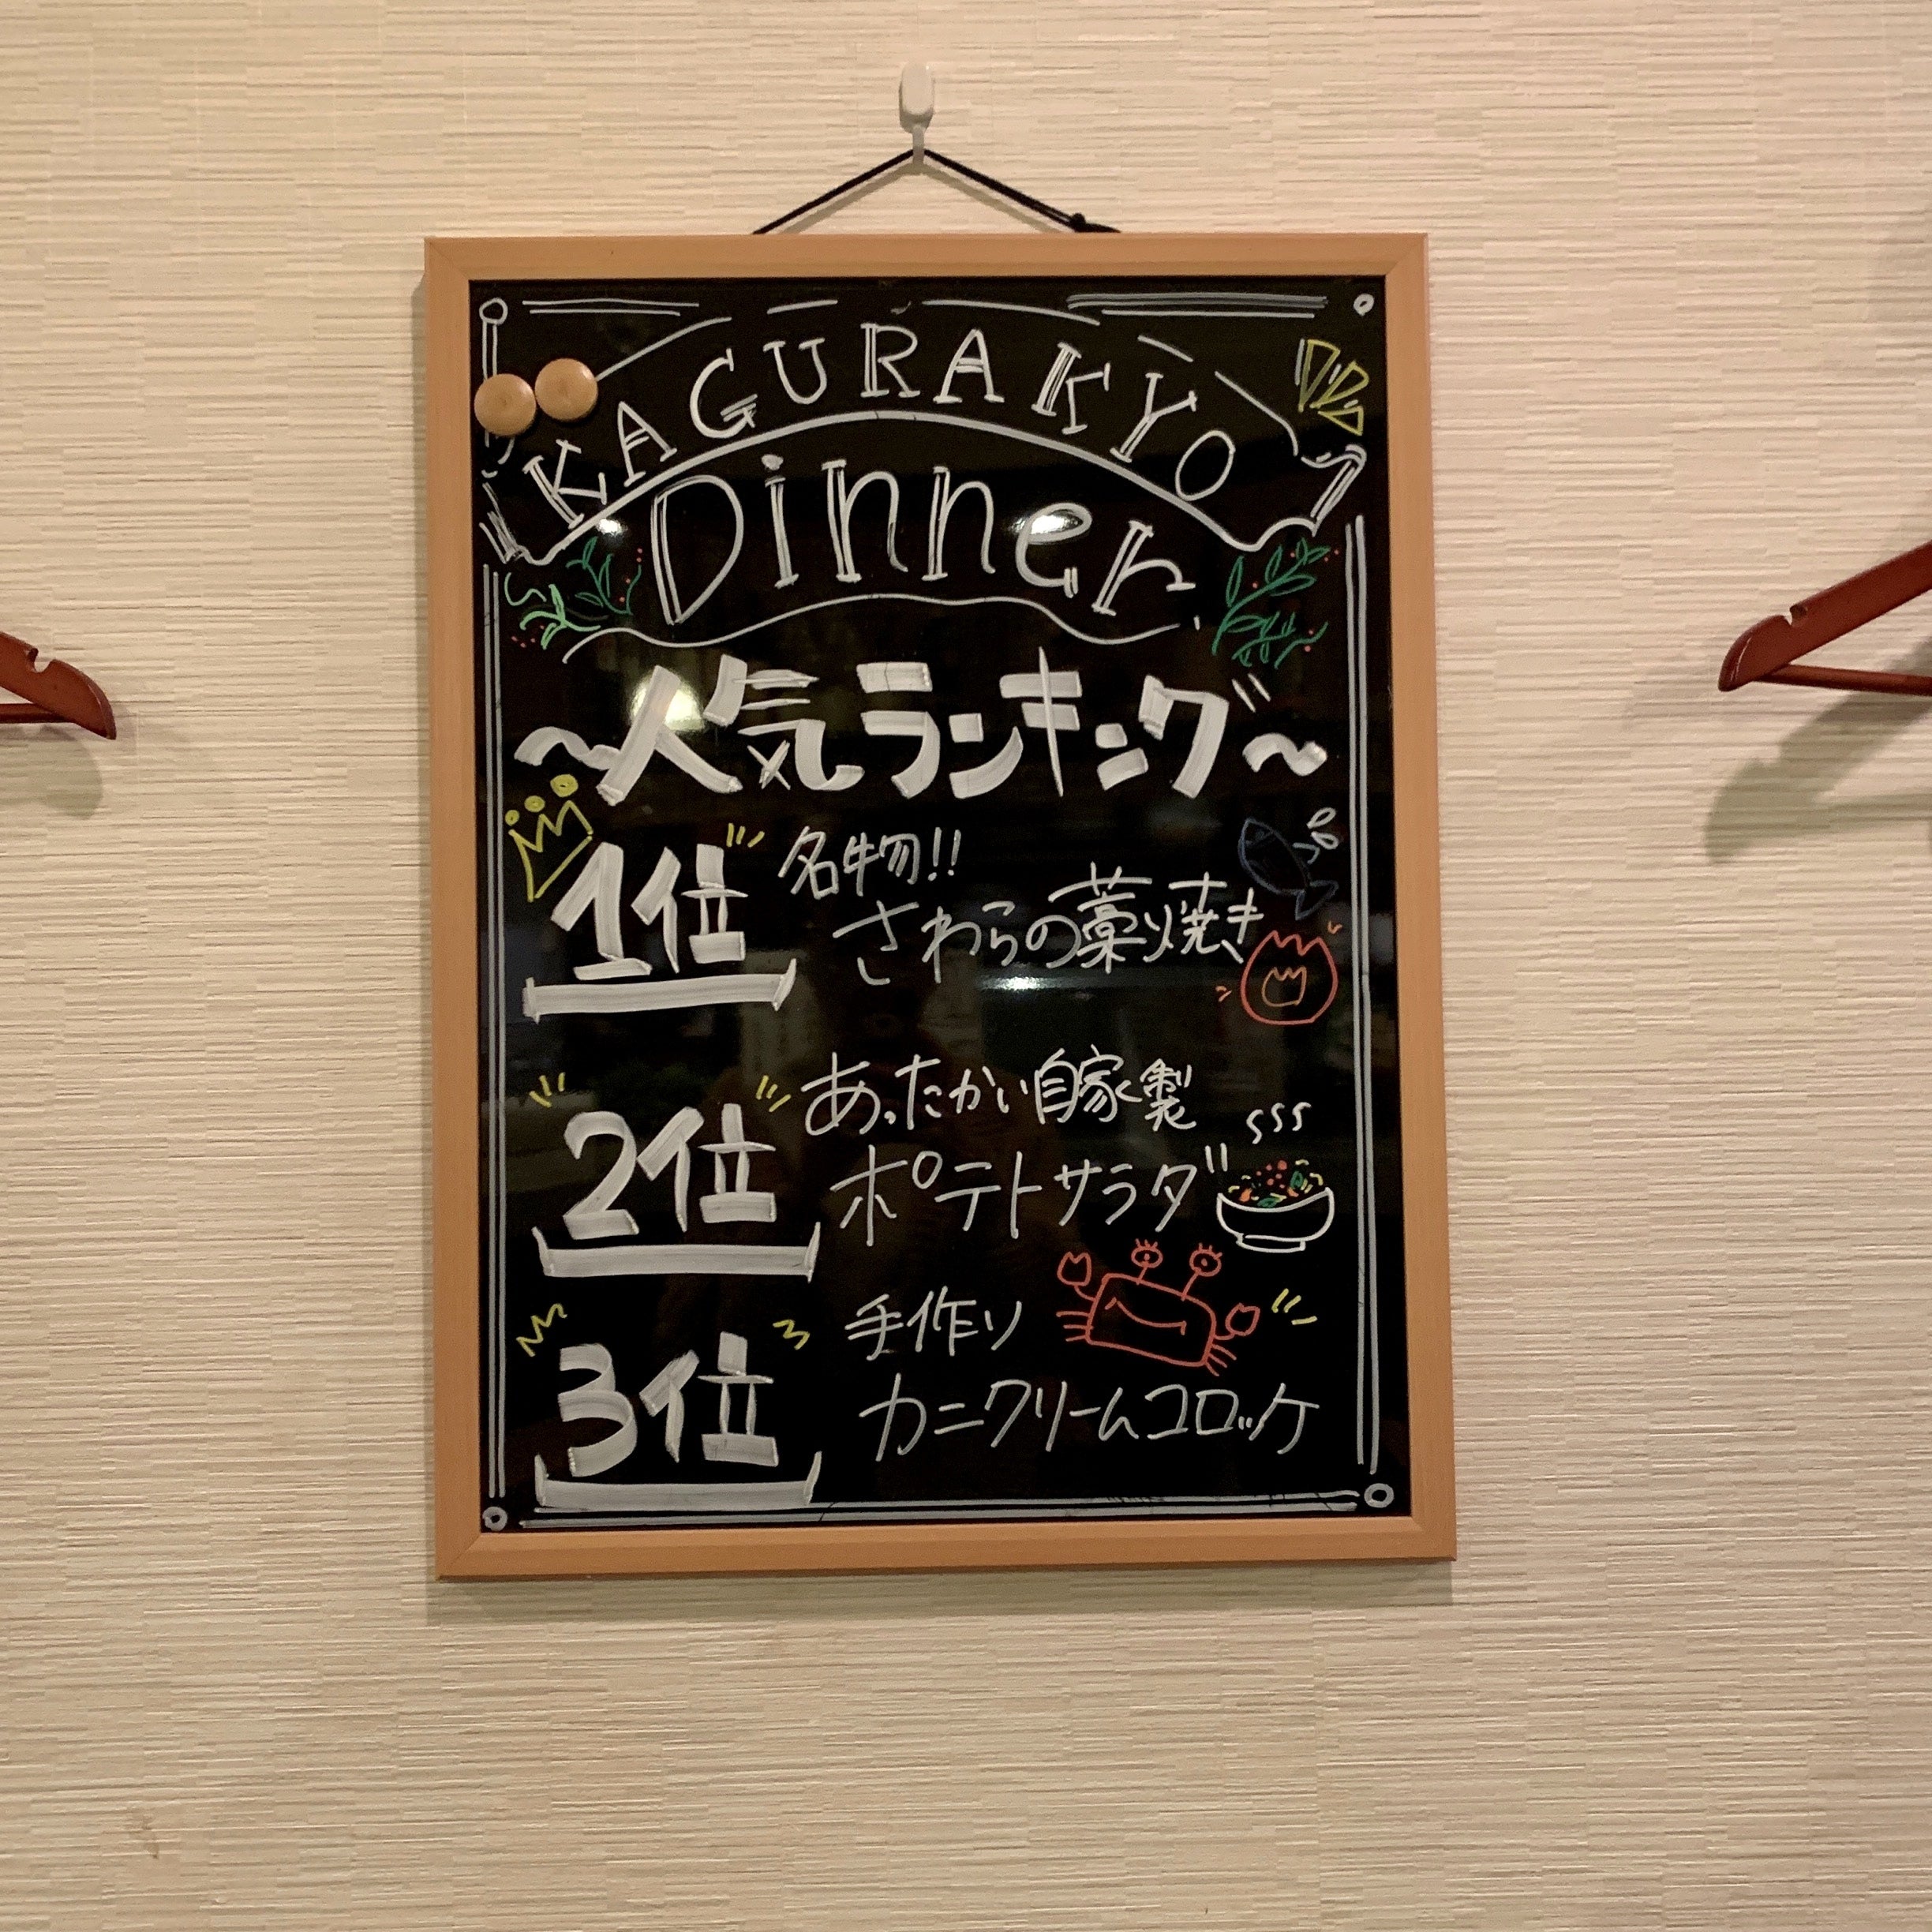 KAGURAKYO
Dinner
～人気ランキング～
1位
名物!!
さわらの藁焼き
2位
あったかい自家製
ポテトサラダ
3位
手作り
カニクリームコロッケ